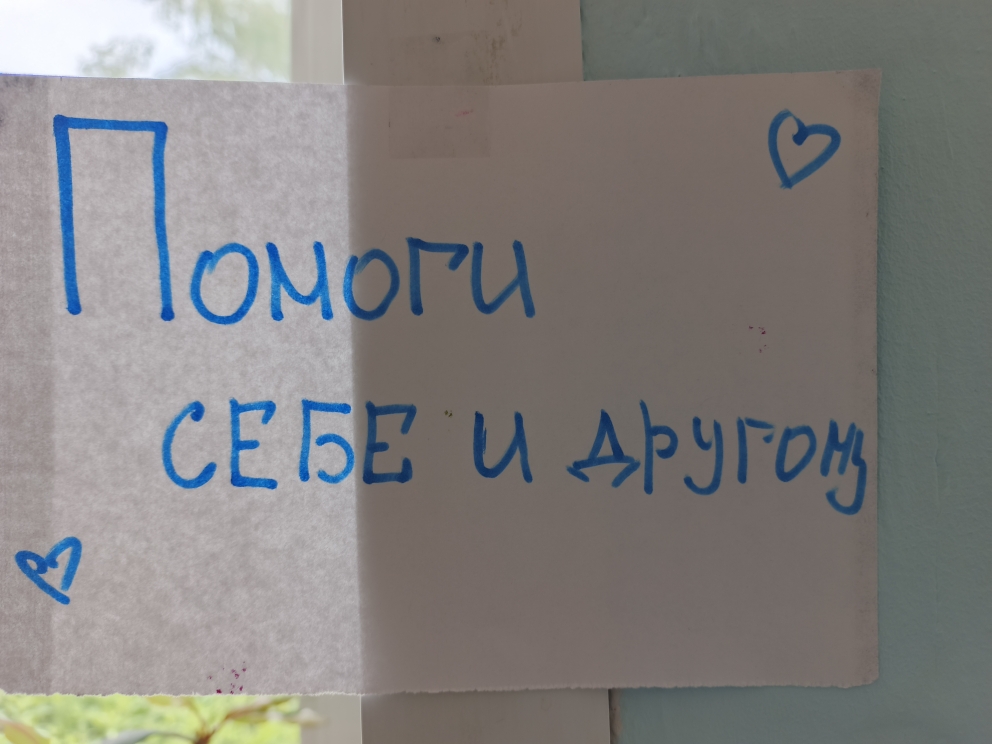 Помоги
СЕБЕ и другому